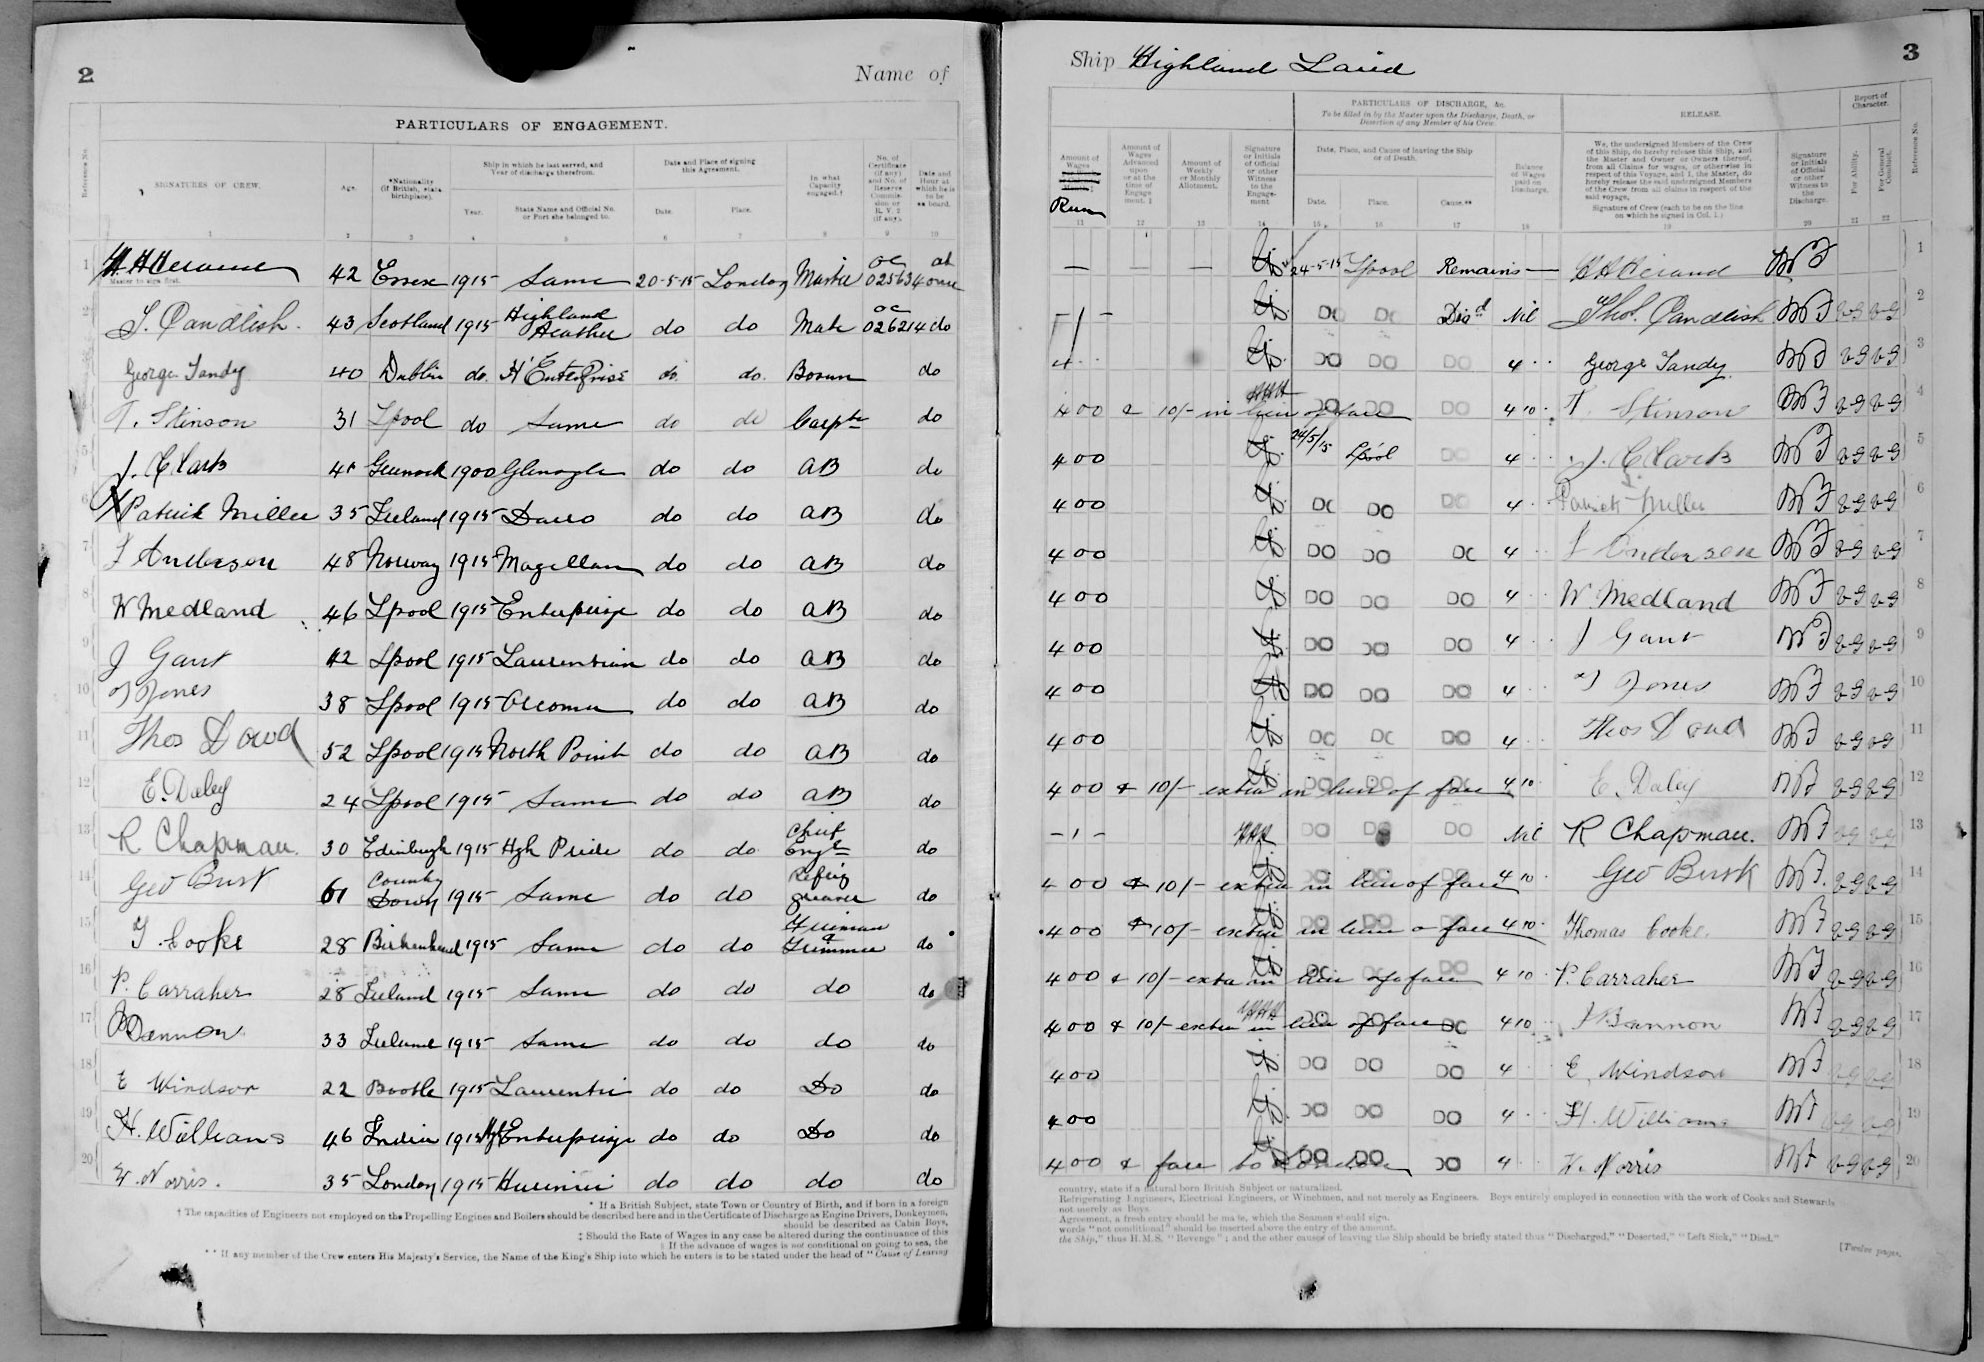 2
Name of
PARTICULARS OF ENGAGEMENT.
Reference No.
SIGNATURES OF CREW.
Age.
*Nationality
(If British, state
birthplace).
Ship in which he last served, and
Year of discharge therefrom.
Year.
State Name and Official No.
or Port she belonged to.
Date and Place of signing
this Agreement.
Date.
Place.
In what
Capacity
engaged.†
No. of
Certificate
(if any)
and No. of
Reserve
Commis-
sion or
R. V. 2
(if any).
Date and
Hour at
which he is
to be
on board.
1 2 3 4 5 6 7 8 9 10
1 42 Essex 1915 Same 20-5-15 London Master 025634 at once
Master to sign first.
2 T. Candlish. 43 Scotland 1915 Highland Heather do do Mate 026214 do
3 George Tandy 40 Dublin do. H' Enterprise do. do. Bosun do
4 T. Stinson 31 Lpool do Same do do Carptr do
5 J. Clark Greenock 1900 Glenogle do do AB do
6 Patrick Miller 35 Ireland 1915 Darro do do AB do
7 J Anderson 48 Norway 1915 Magellan do do AB do
8 W Medland 46 Lpool 1915 Enterprise do do AB do
9 J Gant 42 Lpool 1915 Laurentian do do AB do
10 Jones 38 Lpool 1915 do do AB do
11 Thos Dowd 52 Lpool 1915 North Point do do AB do
12 E. Daley 24 Lpool 1915 Same do do AB do
13 R Chapman. 30 Edinburgh 1915 Hgh Pride do do Chief Engr do
14 Geo Busk 61 County Down 1915 Same do do Refrig greaser do
15 T. Cooke 28 Birkenhead 1915 Same do do Fireman & Trimmer do
16 P. Carraher 28 Ireland 1915 Same do do do do
17 Bannon 33 Ireland 1915 Same do do do do
18 E Windsor 22 Bootle 1915 Laurentic do do Do do
19 H. Williams 46 India 1915 Hgh Enterprise do do Do do
20 W. Norris. 35 London 1915 do do do do
* If a British Subject, state Town or Country of Birth, and if born in a foreign
† The capacities of Engineers not employed on the Propelling Engines and Boilers should be described here and in the Certificate of Discharge as Engine Drivers, Donkeymen,
should be described as Cabin Boys,
‡ Should the Rate of Wages in any case be altered during the continuance of this
|| If the advance of wages is not conditional on going to sea, the
** If any member of the Crew enters His Majesty's Service, the Name of the King's Ship into which he enters is to be stated under the head of "Cause of Leaving
Ship Highland Laird
3
Amount of
Wages
Run
Amount of
Wages
Advanced
upon
or at the
time of
Engage
ment. ‡
Amount of
Weekly
or Monthly
Allotment.
Signature
or Initials
of Official
or other
Witness
to the
Engage-
ment
PARTICULARS OF DISCHARGE, &c.
To be filled in by the Master upon the Discharge, Death, or
Desertion of any Member of his Crew.
Date, Place, and Cause of leaving the Ship
or of Death.
Date.
Place.
Cause.**
Balance
of Wages
paid on
Discharge.
RELEASE.
We, the undersigned Members of the Crew
of this Ship, do hereby release this Ship, and
the Master and Owner or Owners thereof,
from all Claims for wages, or otherwise in
respect of this Voyage, and I, the Master, do
hereby release the said undersigned Members
of the Crew from all claims in respect of the
said voyage.
Signature of Crew (each to be on the line
on which he signed in Col. 1.)
Signature
or Initials
of Official
or other
Witness to
the
Discharge.
Report of
Character.
For Ability.
For General
Conduct.
Reference No.
11 12 13 14 15 16 17 18 19 20 21 22
24-5-15 Lpool Remains 1
DO DO Disd Nil Thos. Candlish VG VG 2
DO DO DO 4 George Tandy VG VG 3
4 00 & 10/- in lieu of fare DO DO DO 4 10 T. Stinson VG VG 4
4 00 24/5/15 Lpool DO 4 J. Clark VG VG 5
4 00 DO DO DO 4 Patrick Miller VG VG 6
4 00 DO DO DO 4 J Anderson VG VG 7
4 00 DO DO DO 4 W. Medland VG VG 8
4 00 DO DO DO 4 J Gant VG VG 9
4 00 DO DO DO 4 Jones VG VG 10
4 00 DO DO DO 4 Thos Dowd VG VG 11
4 00 & 10/- extra in lieu of fare DO DO DO 4 10 E. Daley VG VG 12
- 1 - DO DO DO Nil R Chapman. VG VG 13
4 00 & 10/- extra in lieu of fare DO DO DO 4 10 Geo Busk VG VG 14
4 00 & 10/- extra in lieu o fare DO DO DO 4 10 Thomas Cooke. VG VG 15
4 00 & 10/- extra in lieu of fare DO DO DO 4 10 P. Carraher VG VG 16
4 00 & 10/- extra in lieu of fare DO DO DO 4 10 J Bannon VG VG 17
4 00 DO DO DO 4 E. Windsor VG VG 18
4 00 DO DO DO 4 H. Williams VG VG 19
4 00 & fare to London DO DO DO 4 W. Norris VG VG 20
country, state if a natural born British Subject or naturalized.
Refrigerating Engineers, Electrical Engineers, or Winchmen, and not merely as Engineers. Boys entirely employed in connection with the work of Cooks and Stewards
not merely as Boys.
Agreement, a fresh entry should be made, which the Seamen should sign.
words "not conditional" should be inserted above the entry of the amount.
the Ship," thus H.M.S. "Revenge"; and the other causes of leaving the Ship should be briefly stated thus "Discharged," "Deserted," "Left Sick," "Died."
[Twelve pages.